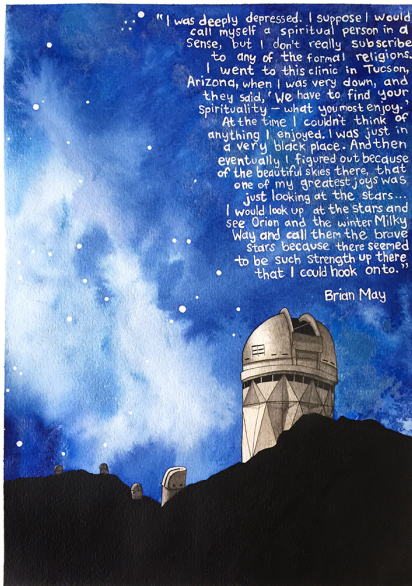 "I was deeply depressed. I suppose I would
call myself a spiritual person in a
sense, but I don't really subscribe
to any of the formal religions.
I went to this clinic in Tucson,
Arizona, when I was very down, and
they said, 'We have to find your
Spirituality – what you most enjoy.'
At the time I couldn't think of
anything I enjoyed. I was just in
a very black place. And then
eventually I figured out because
of the beautiful skies there, that
one of my greatest joys was
just looking at the stars...
I would look up at the stars and
see Orion and the winter Milky
Way and call them the brave
stars because there seemed
to be such strength up there
that I could hook onto."
Brian May